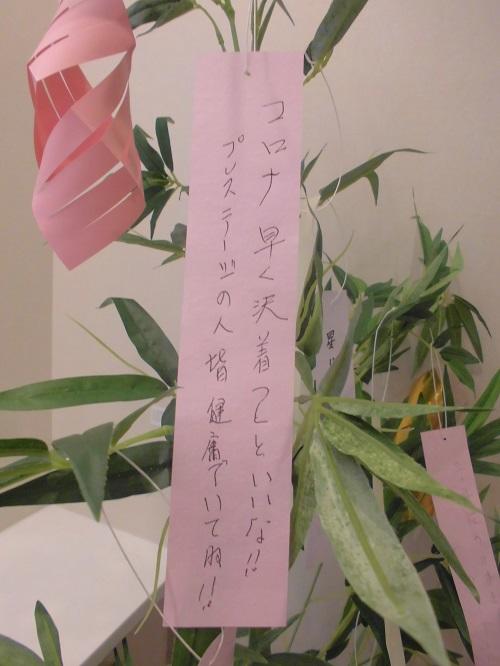 コロナ 早く沢着つくといいな!!
プレステージの人 皆 健康でいて
星